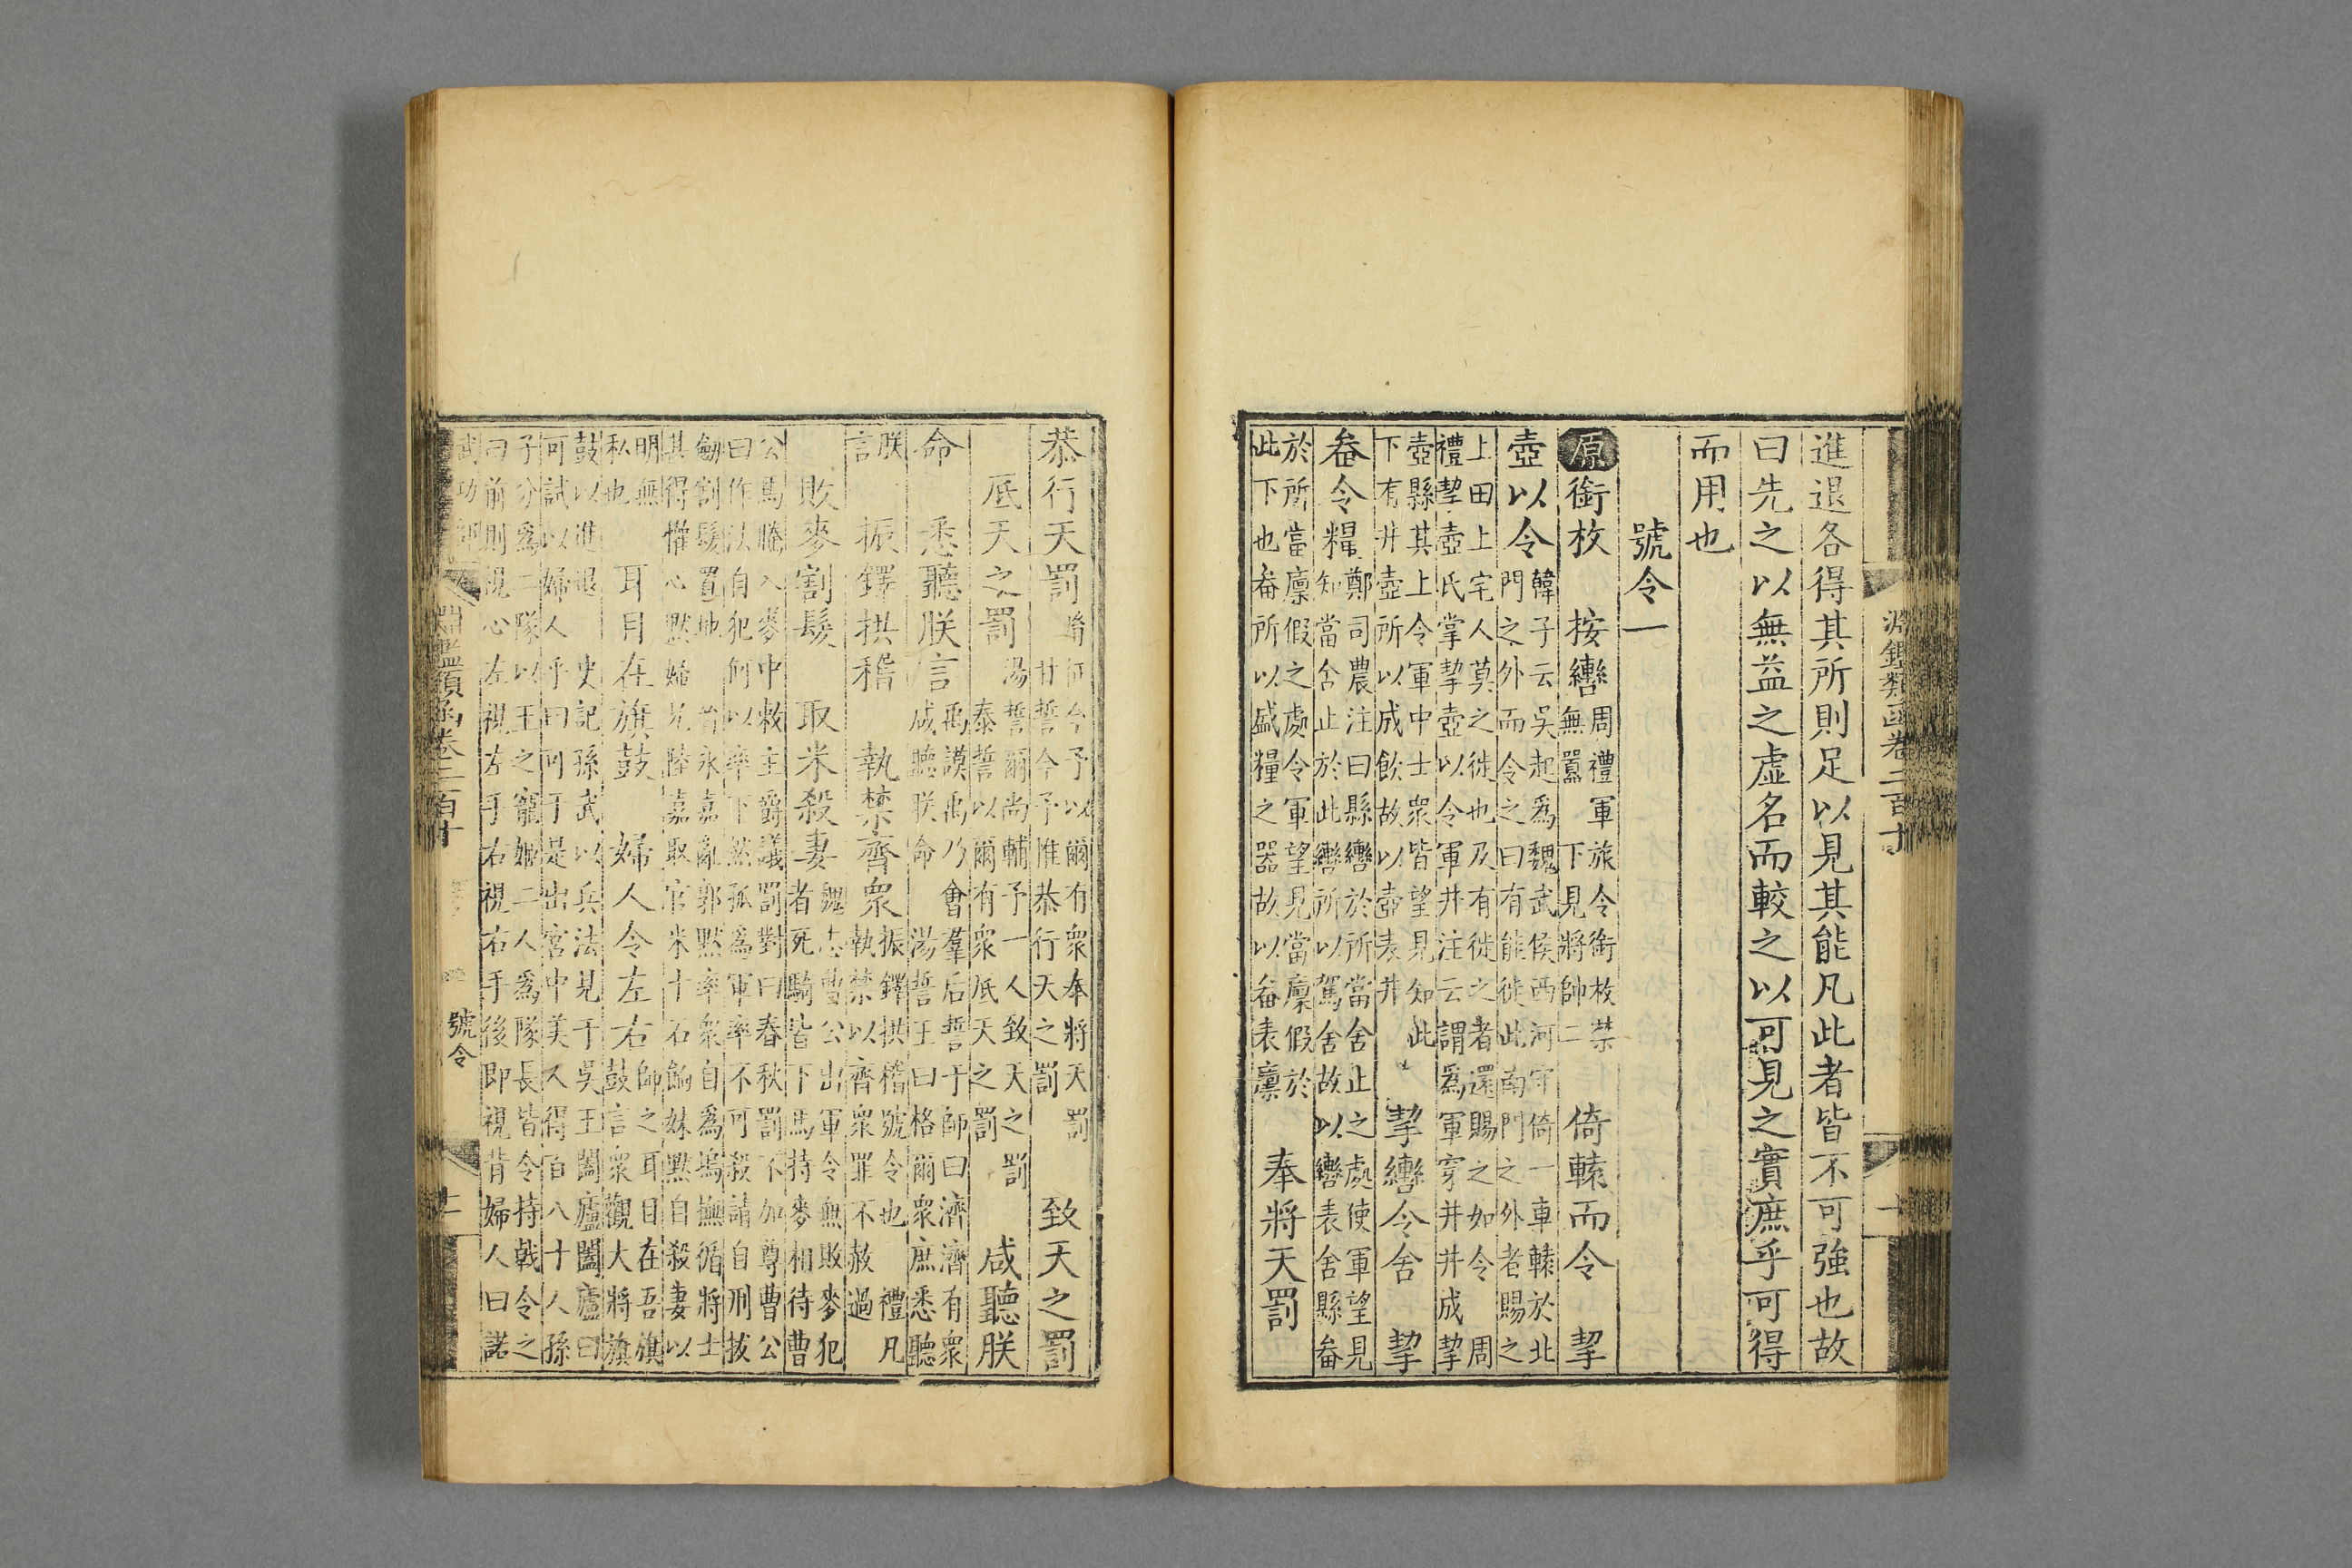 淵鑑類函卷二百十
進退各得其所則足以見其能凡此者皆不可強也故
曰先之以無益之虛名而較之以可見之實庶乎可得
而用也
號令一
原銜枚 按轡
周禮軍旅令銜枚禁
無嚻 下見將帥二
倚轅而令 挈
壺以令
韓子云吳起爲魏武侯西河守倚一車轅於北
門之外而令之曰有能徙此南門之外者賜之
上田上宅人莫之徙也及有徙之者還賜之如令 周
禮挈壺氏掌挈壺以令軍井注云謂爲軍穿井井成挈
壺縣其上令軍中士衆皆望見知此
下有井壺所以成飲故以壺表井
挈轡令舍 挈
畚令糧
鄭司農注曰縣轡於所當舍止之處使軍望見
知當舍止於此轡所以駕舍故以轡表舍縣畚
於所當廩假之處令軍望見當廩假於
此下也畚所以盛糧之器故以畚表廩
奉將天罰
恭行天罰
今予以爾有衆奉將天罰
甘誓今予惟恭行天之罰
致天之罰
底天之罰
湯誓爾尚輔予一人致天之罰
泰誓以爾有衆底天之罰
咸聽朕
命 悉聽朕言
禹謨禹乃會羣后誓于師曰濟濟有衆
咸聽朕命 湯誓王曰格爾衆庶悉聽
朕
言
振鐸拱稽 執禁齊衆
振鐸拱稽號令也 禮凡
執禁以齊衆罪不赦過
敗麥割髮 取米殺妻
魏志曹公出軍令無敗麥犯
者死騎皆下馬持麥相待曹
公馬騰入麥中敕主爵議罰對曰春秋罰不加尊曹公
曰作法自犯何以率下然孤爲軍率不可殺請自刑拔
劒割髮置地 晉永嘉亂郭默率衆自爲塢撫循將士
其得懽心默婦兄陸嘉取官米十石餉妹默自殺妻以
明無
私也
耳目在旗鼓 婦人令左右
師之耳目在吾旗
鼓言衆觀大將旗
鼓以進退 史記孫武以兵法見于吳王闔廬闔廬曰
可試以婦人乎曰可于是出宮中美人得百八十人孫
子分爲二隊以王之寵姬二人爲隊長皆令持戟令之
曰前則視心左視左手右視右手後即視背婦人曰諾
淵鑑類函卷二百十
號令